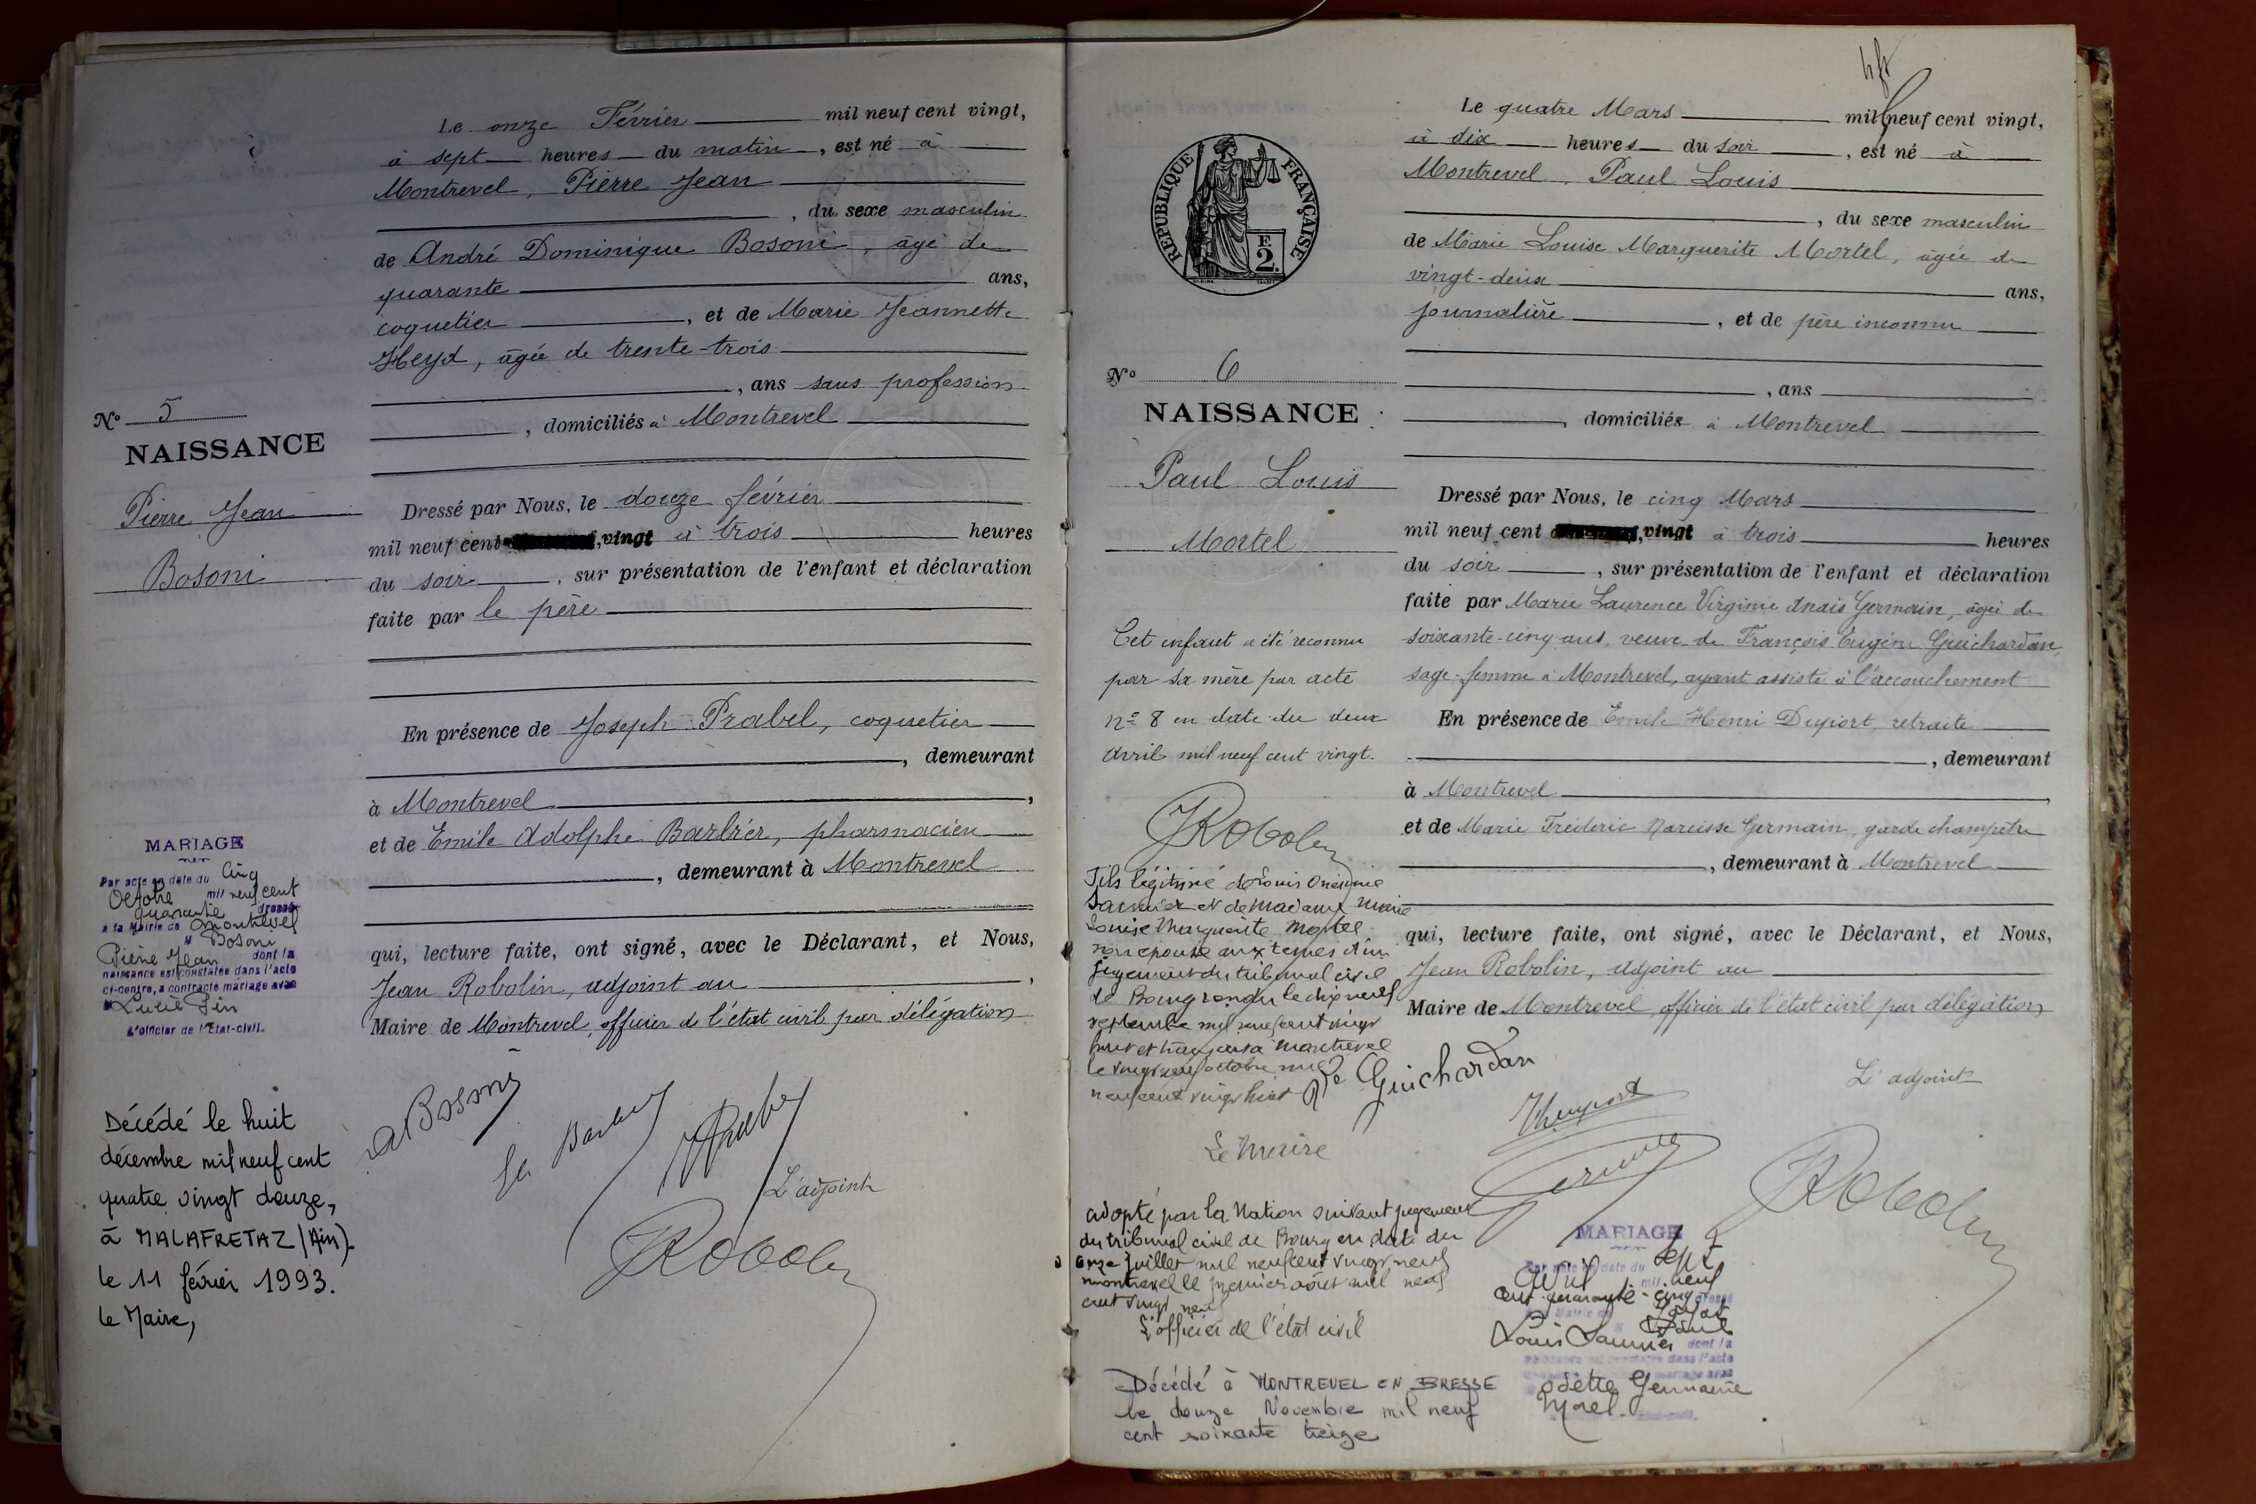 Le onze Février mil neuf cent vingt,
à sept heures du matin, est né à
Montrevel, Pierre Jean
, du sexe masculin
de André Dominique Bosoni, âgé de
quarante ans,
coquetier, et de Marie Jeannette
Heyd, âgée de trente-trois
, ans sans profession
, domiciliés à Montrevel
No 5
NAISSANCE
Pierre Jean
Bosoni
Dressé par Nous, le douze février
mil neuf cent vingt à trois heures
du soir, sur présentation de l'enfant et déclaration
faite par le père
En présence de Joseph Prabel, coquetier
, demeurant
à Montrevel,
et de Emile Adolphe Barbier, pharmacien
, demeurant à Montrevel
qui, lecture faite, ont signé, avec le Déclarant, et Nous,
Jean Robolin, adjoint au,
Maire de Montrevel, officier de l'état civil par délégation
MARIAGE
Par acte en date du Cinq
Octobre mil neuf cent
quarante dressé
à la Mairie de Montrevel
M Bosoni
Pierre Jean dont la
naissance est constatée dans l'acte
ci-contre, a contracté mariage avec
Lucie Pin
L'officier de l'Etat-civil.
Décédé le huit
décembre mil neuf cent
quatre vingt douze,
à MALAFRETAZ (Ain).
le 11 février 1993.
le Maire,
A Bosoni
L'adjoint
JRobolin
Le quatre Mars mil neuf cent vingt,
à dix heures du soir, est né à
Montrevel, Paul Louis
, du sexe masculin
de Marie Louise Marguerite Mortel, âgée de
vingt-deux ans,
journalière, et de père inconnu
, ans
, domiciliée à Montrevel
RÉPUBLIQUE FRANÇAISE
F.
2.
No 6
NAISSANCE
Paul Louis
Mortel
Dressé par Nous, le cinq Mars
mil neuf cent vingt à trois heures
du soir, sur présentation de l'enfant et déclaration
faite par Marie Laurence Virginie Anaïs Germain, âgée de
soixante-cinq ans, veuve de François Eugène Guichardan,
sage-femme à Montrevel, ayant assisté à l'accouchement
En présence de Emile Henri Duport, retraité
, demeurant
à Montrevel,
et de Marie Frédéric Narcisse Germain, garde champêtre
, demeurant à Montrevel
qui, lecture faite, ont signé, avec le Déclarant, et Nous,
Jean Robolin, adjoint au
Maire de Montrevel, officier de l'état civil par délégation
Cet enfant a été reconnu
par sa mère par acte
no 8 en date du deux
Avril mil neuf cent vingt.
JRobolin
Fils légitimé de Louis Onésime
Saunier et de Madame Marie
Louise Marguerite Mortel
son épouse aux termes d'un
jugement du tribunal civil
de Bourg rendu le dix neuf
septembre mil neuf cent vingt
huit et transcrit à Montrevel
le vingt neuf octobre mil
neuf cent vingt huit
Le Maire
Ve Guichardan
L'adjoint
Duport
Germain
JRobolin
adopté par la Nation suivant jugement
du tribunal civil de Bourg en date du
onze juillet mil neuf cent vingt neuf
Montrevel le premier août mil neuf
cent vingt neuf
L'officier de l'état civil
MARIAGE
Par acte en date du Sept
Avril mil neuf
cent quarante-cinq dressé
Paul
Louis Saunier dont la
Odette Germaine
Morel.
Décédé à MONTREVEL EN BRESSE
le douze Novembre mil neuf
cent soixante treize